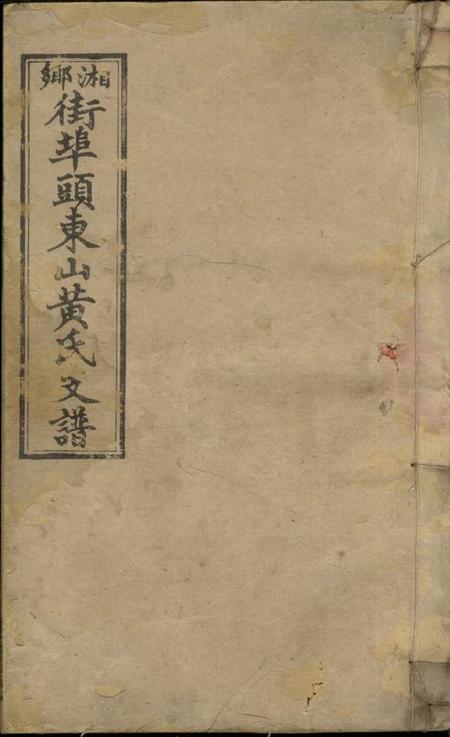 湘鄉
街埠頭東山黃氏文譜